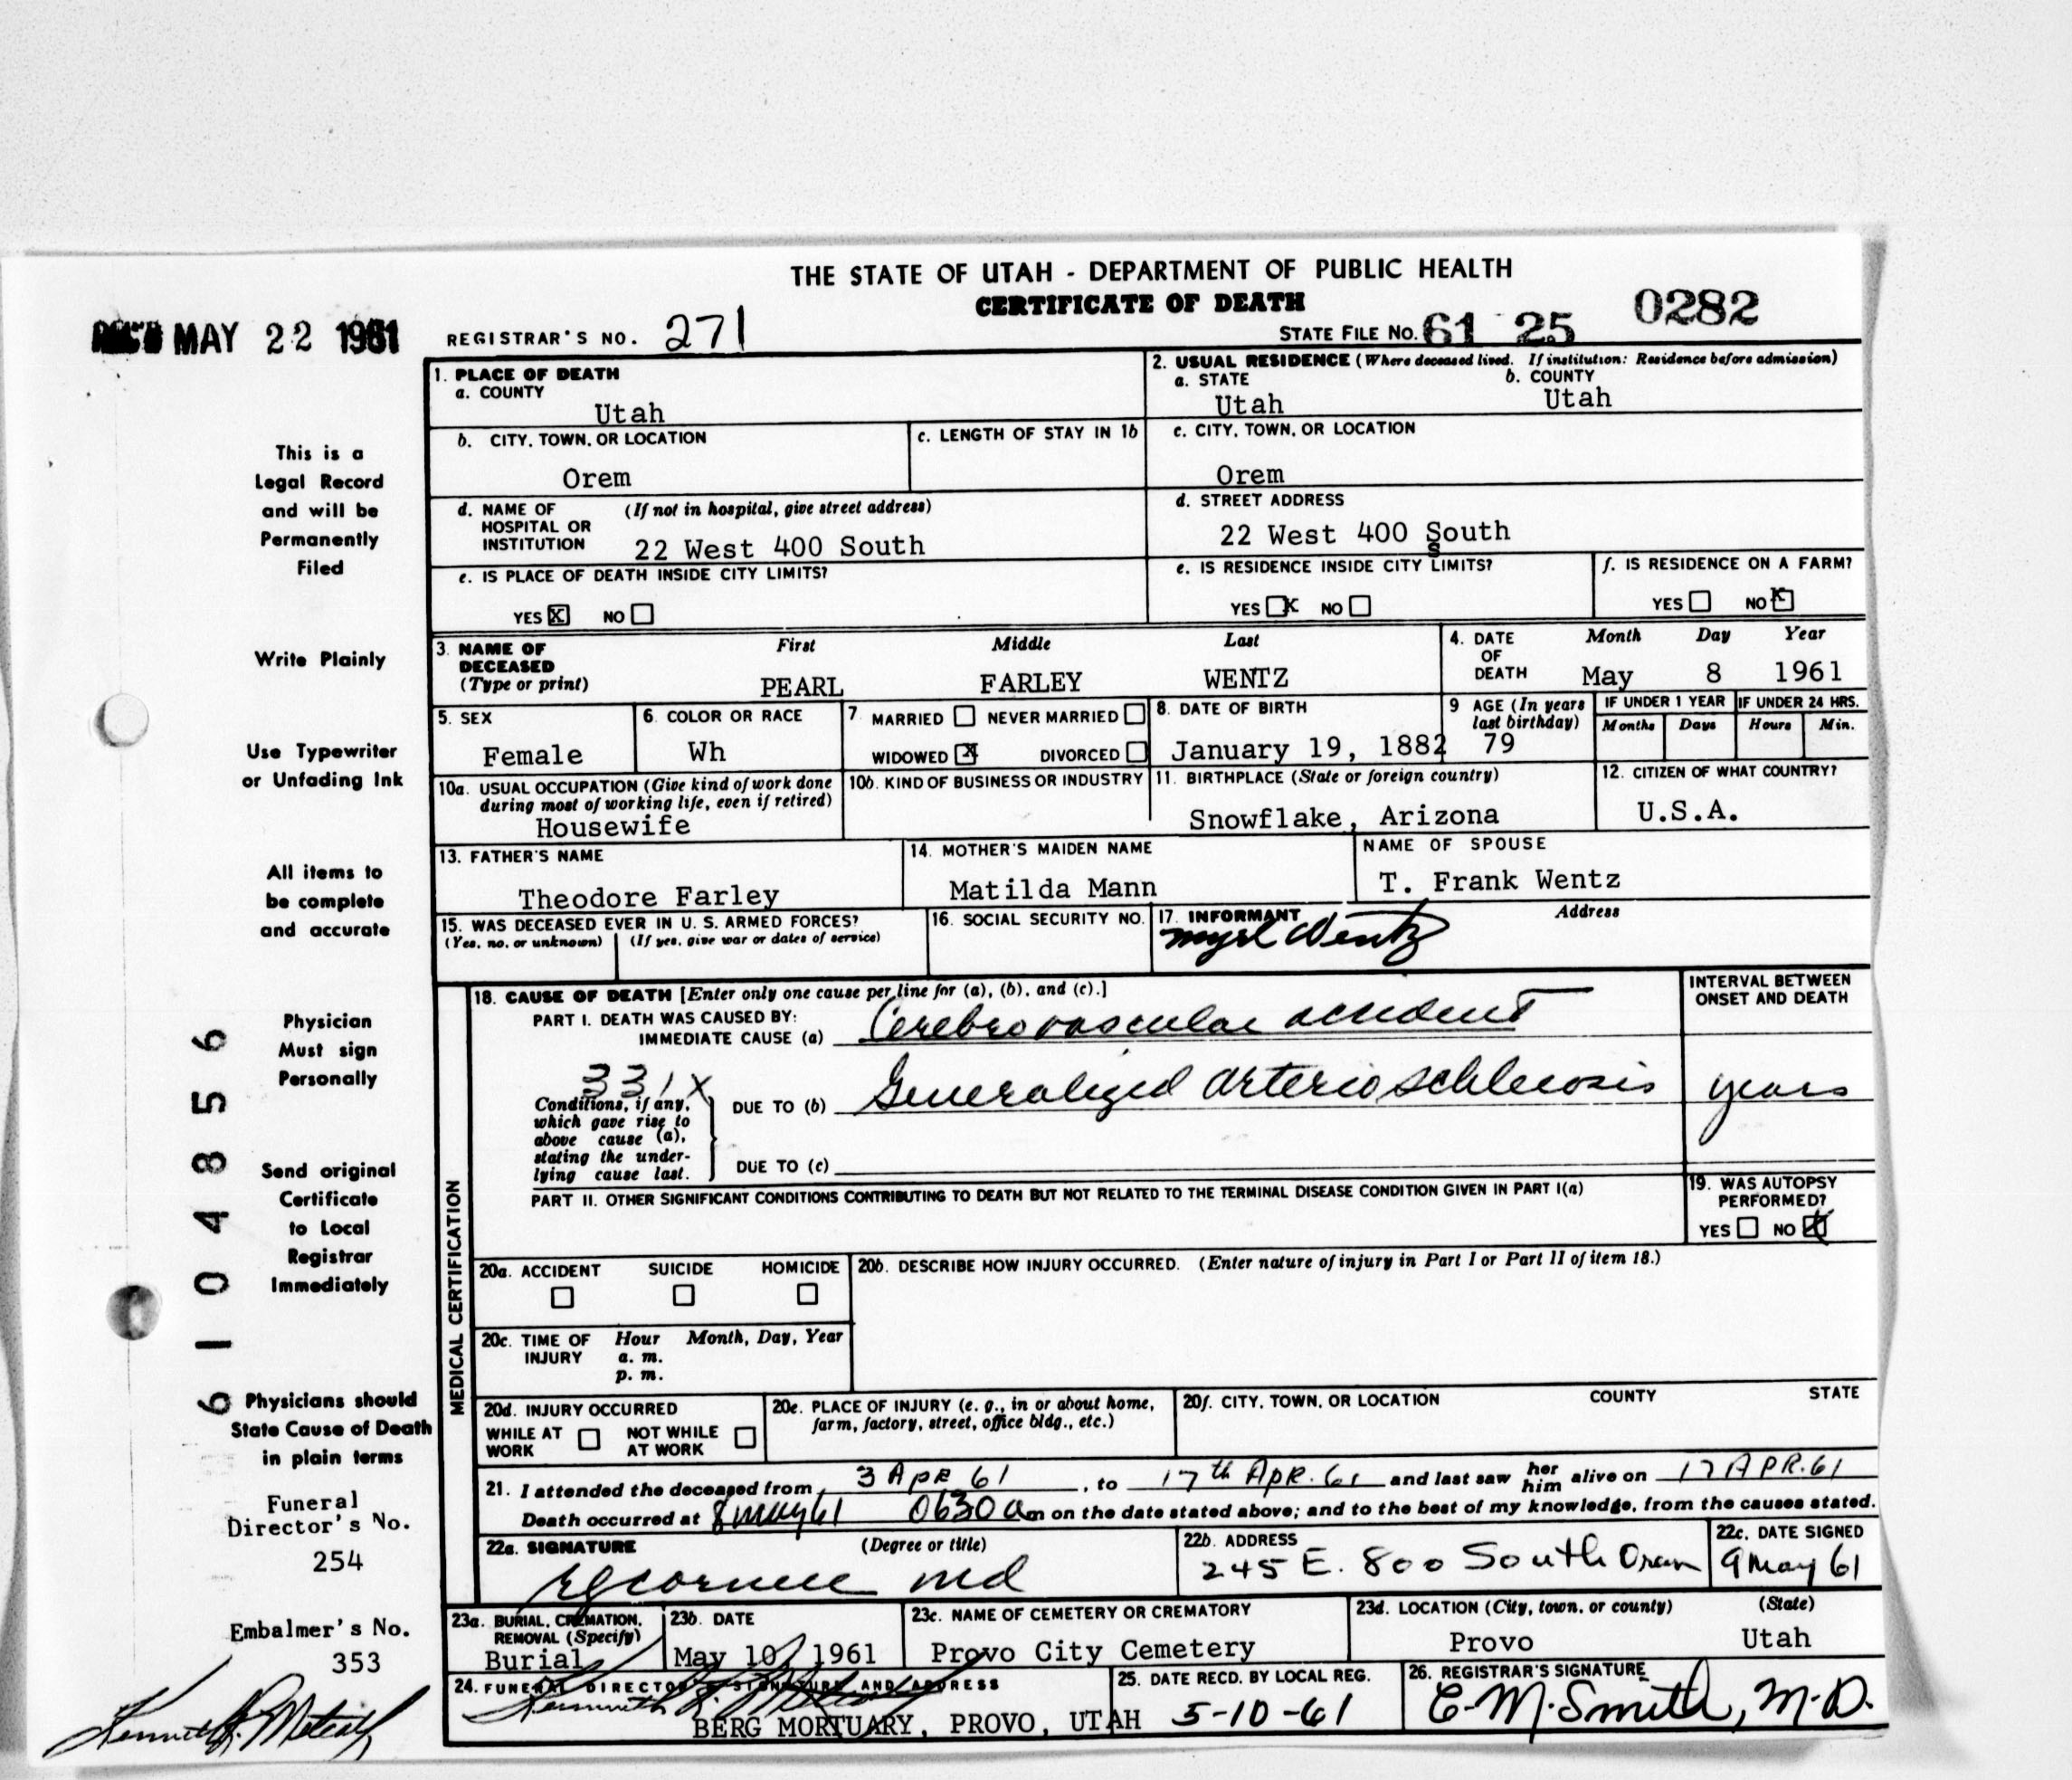 THE STATE OF UTAH - DEPARTMENT OF PUBLIC HEALTH
CERTIFICATE OF DEATH
REC'D MAY 22 1961
REGISTRAR'S NO. 271
STATE FILE NO. 61 25 0282
1. PLACE OF DEATH
a. COUNTY
Utah
2. USUAL RESIDENCE (Where deceased lived. If institution: Residence before admission)
a. STATE
Utah
b. COUNTY
Utah
b. CITY, TOWN, OR LOCATION
Orem
c. LENGTH OF STAY IN 1b
c. CITY, TOWN, OR LOCATION
Orem
d. NAME OF HOSPITAL OR INSTITUTION
(If not in hospital, give street address)
22 West 400 South
d. STREET ADDRESS
22 West 400 South
s
e. IS PLACE OF DEATH INSIDE CITY LIMITS?
YES X NO
e. IS RESIDENCE INSIDE CITY LIMITS?
YES X NO
f. IS RESIDENCE ON A FARM?
YES NO X
3. NAME OF DECEASED (Type or print)
First Middle Last
PEARL FARLEY WENTZ
4. DATE OF DEATH
Month Day Year
May 8 1961
5. SEX
Female
6. COLOR OR RACE
Wh
7. MARRIED NEVER MARRIED
WIDOWED X DIVORCED
8. DATE OF BIRTH
January 19, 1882
9 AGE (In years last birthday)
79
IF UNDER 1 YEAR
Months Days
IF UNDER 24 HRS.
Hours Min.
10a. USUAL OCCUPATION (Give kind of work done during most of working life, even if retired)
Housewife
10b. KIND OF BUSINESS OR INDUSTRY
11. BIRTHPLACE (State or foreign country)
Snowflake, Arizona
12. CITIZEN OF WHAT COUNTRY?
U.S.A.
13. FATHER'S NAME
Theodore Farley
14. MOTHER'S MAIDEN NAME
Matilda Mann
NAME OF SPOUSE
T. Frank Wentz
15. WAS DECEASED EVER IN U. S. ARMED FORCES?
(Yes, no, or unknown) (If yes, give war or dates of service)
16. SOCIAL SECURITY NO.
17. INFORMANT Address
Myrl Wentz
MEDICAL CERTIFICATION
18. CAUSE OF DEATH [Enter only one cause per line for (a), (b), and (c).]
INTERVAL BETWEEN ONSET AND DEATH
PART I. DEATH WAS CAUSED BY:
IMMEDIATE CAUSE (a) Cerebrovascular accident
331X
Conditions, if any, which gave rise to above cause (a), stating the underlying cause last.
DUE TO (b) Generalized arterioschlerosis years
DUE TO (c)
PART II. OTHER SIGNIFICANT CONDITIONS CONTRIBUTING TO DEATH BUT NOT RELATED TO THE TERMINAL DISEASE CONDITION GIVEN IN PART I(a)
19. WAS AUTOPSY PERFORMED?
YES NO X
20a. ACCIDENT SUICIDE HOMICIDE
20b. DESCRIBE HOW INJURY OCCURRED. (Enter nature of injury in Part I or Part II of item 18.)
20c. TIME OF INJURY
Hour Month, Day, Year
a. m.
p. m.
20d. INJURY OCCURRED
WHILE AT WORK NOT WHILE AT WORK
20e. PLACE OF INJURY (e. g., in or about home, farm, factory, street, office bldg., etc.)
20f. CITY, TOWN, OR LOCATION COUNTY STATE
21. I attended the deceased from 3 APR 61, to 17th APR. 61 and last saw her him alive on 17 APR. 61
Death occurred at 8 May 61 0630 a m on the date stated above; and to the best of my knowledge, from the causes stated.
22a. SIGNATURE (Degree or title)
md
22b. ADDRESS
245 E. 800 South Orem
22c. DATE SIGNED
9 May 61
23a. BURIAL, CREMATION, REMOVAL (Specify)
Burial
23b. DATE
May 10, 1961
23c. NAME OF CEMETERY OR CREMATORY
Provo City Cemetery
23d. LOCATION (City, town, or county) (State)
Provo Utah
24. FUNERAL DIRECTOR'S SIGNATURE AND ADDRESS
Kenneth R. Metcalf
BERG MORTUARY, PROVO, UTAH
25. DATE RECD. BY LOCAL REG.
5-10-61
26. REGISTRAR'S SIGNATURE
C. M. Smith, M.D.
This is a
Legal Record
and will be
Permanently
Filed
Write Plainly
Use Typewriter
or Unfading Ink
All items to
be complete
and accurate
Physician
Must sign
Personally
Send original
Certificate
to Local
Registrar
Immediately
Physicians should
State Cause of Death
in plain terms
6104856
Funeral
Director's No.
254
Embalmer's No.
353
Kenneth R. Metcalf